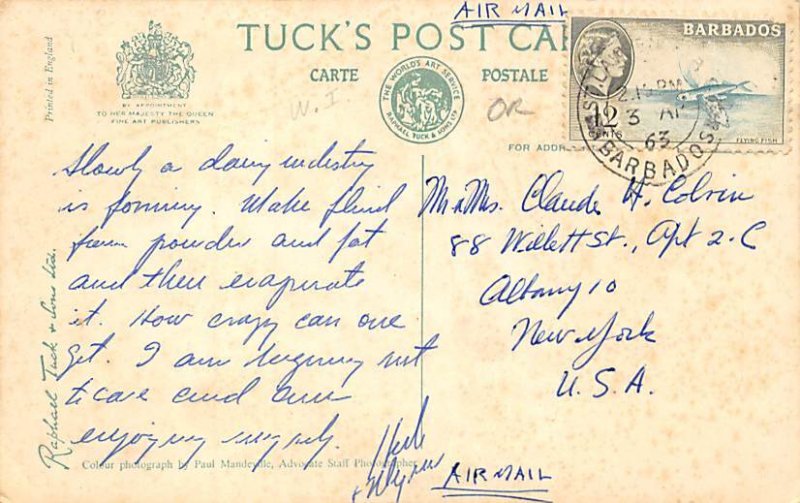 AIR MAIL
TUCK'S POST CAR
CARTE POSTALE
W. I
OR
BY APPOINTMENT
TO HER MAJESTY THE QUEEN
FINE ART PUBLISHERS
THE WORLD'S ART SERVICE
RAPHAEL TUCK & SONS LTD
FOR ADDR
BARBADOS
12
CENTS
FLYING FISH
3 AP
63
BARBADOS
Printed in England
Raphael Tuck & Sons Ltd.
Slowly a dairy industry
is forming. Make fluid
from powder and fat
and then evaporate
it. How crazy can one
get. I am
and am
enjoying
Herb
Mr & Mrs. Claude H. Colvin
88 Willett St., Apt 2-C
Albany 10
New York
U.S.A.
Colour photograph by Paul Mandeville, Advocate Staff Photographer
AIR MAIL